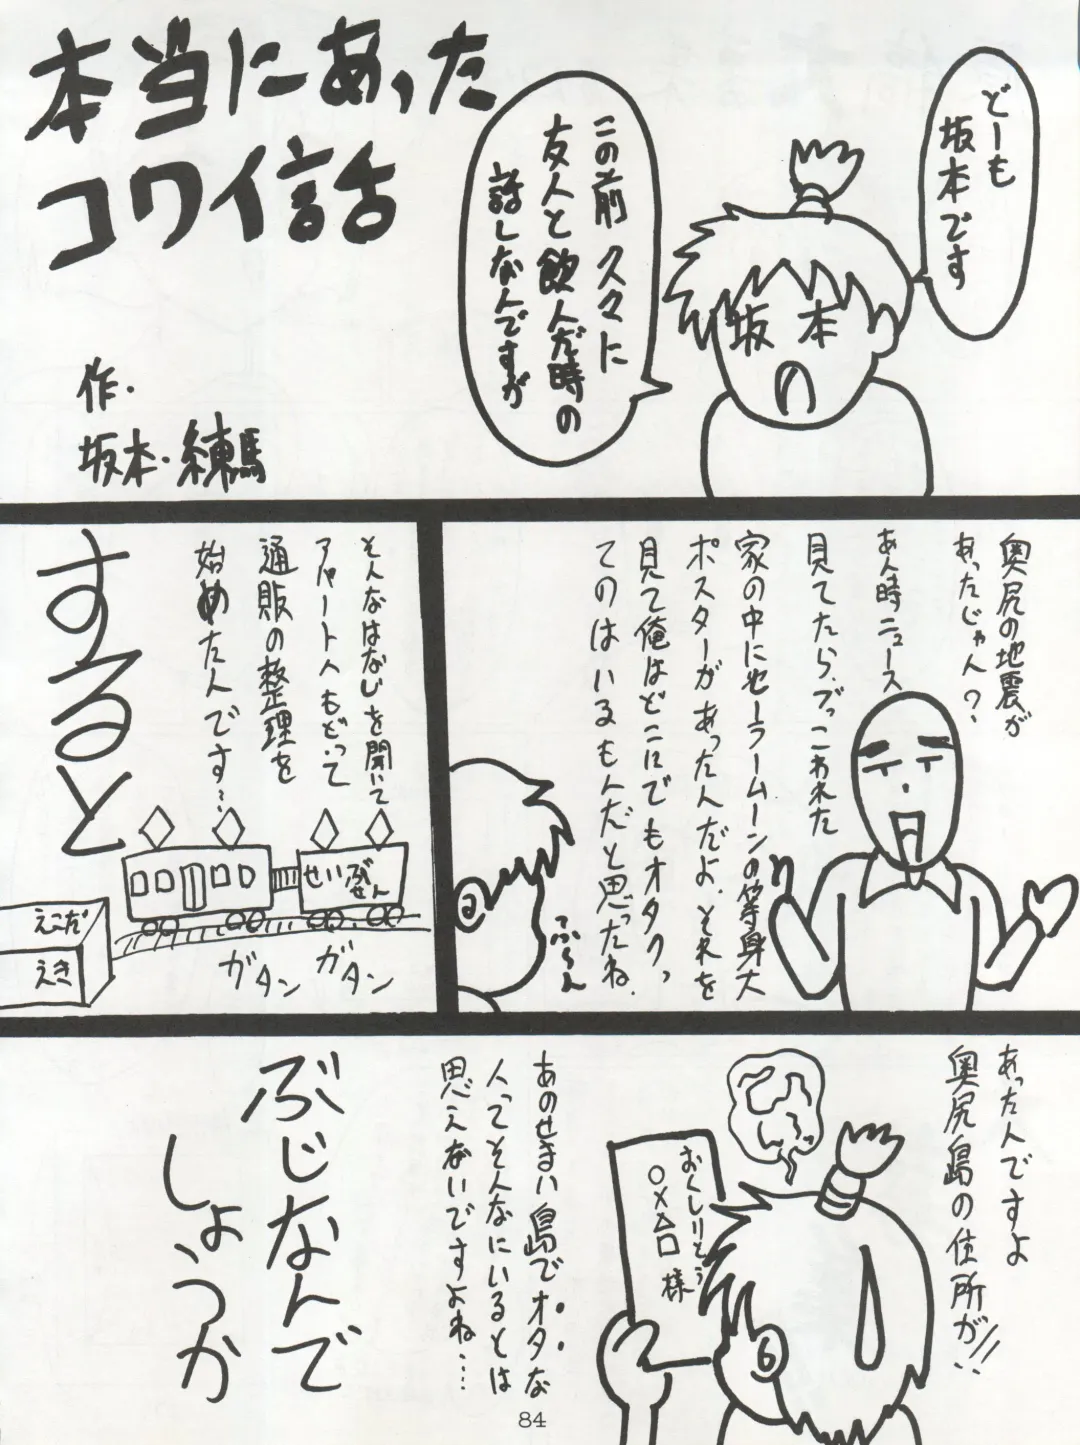 本当にあった
コワイ話
作・
坂本・練馬
どーも
坂本です
この前久々に
友人と飲んだ時の
話しなんですが
坂本
奥尻の地震が
あったじゃん?
あん時ニュース
見てたら、ぶっこわれた
家の中にセーラームーンの等身大
ポスターがあったんだよ、それを
見て俺はどこにでもオタクっ
てのはいるもんだと思ったね.
ふーん
そんなはなしを聞いて
アパートへもどって
通販の整理を
始めたんです…
すると
せいぶせん
えこだ
えき
ガタン
ガタン
あったんですよ
奥尻島の住所が!!
おくしりとう
○×△□様
あのせまい島でオタな
人ってそんなにいるとは
思えないですよね…
ぶじなんで
しょうか
84